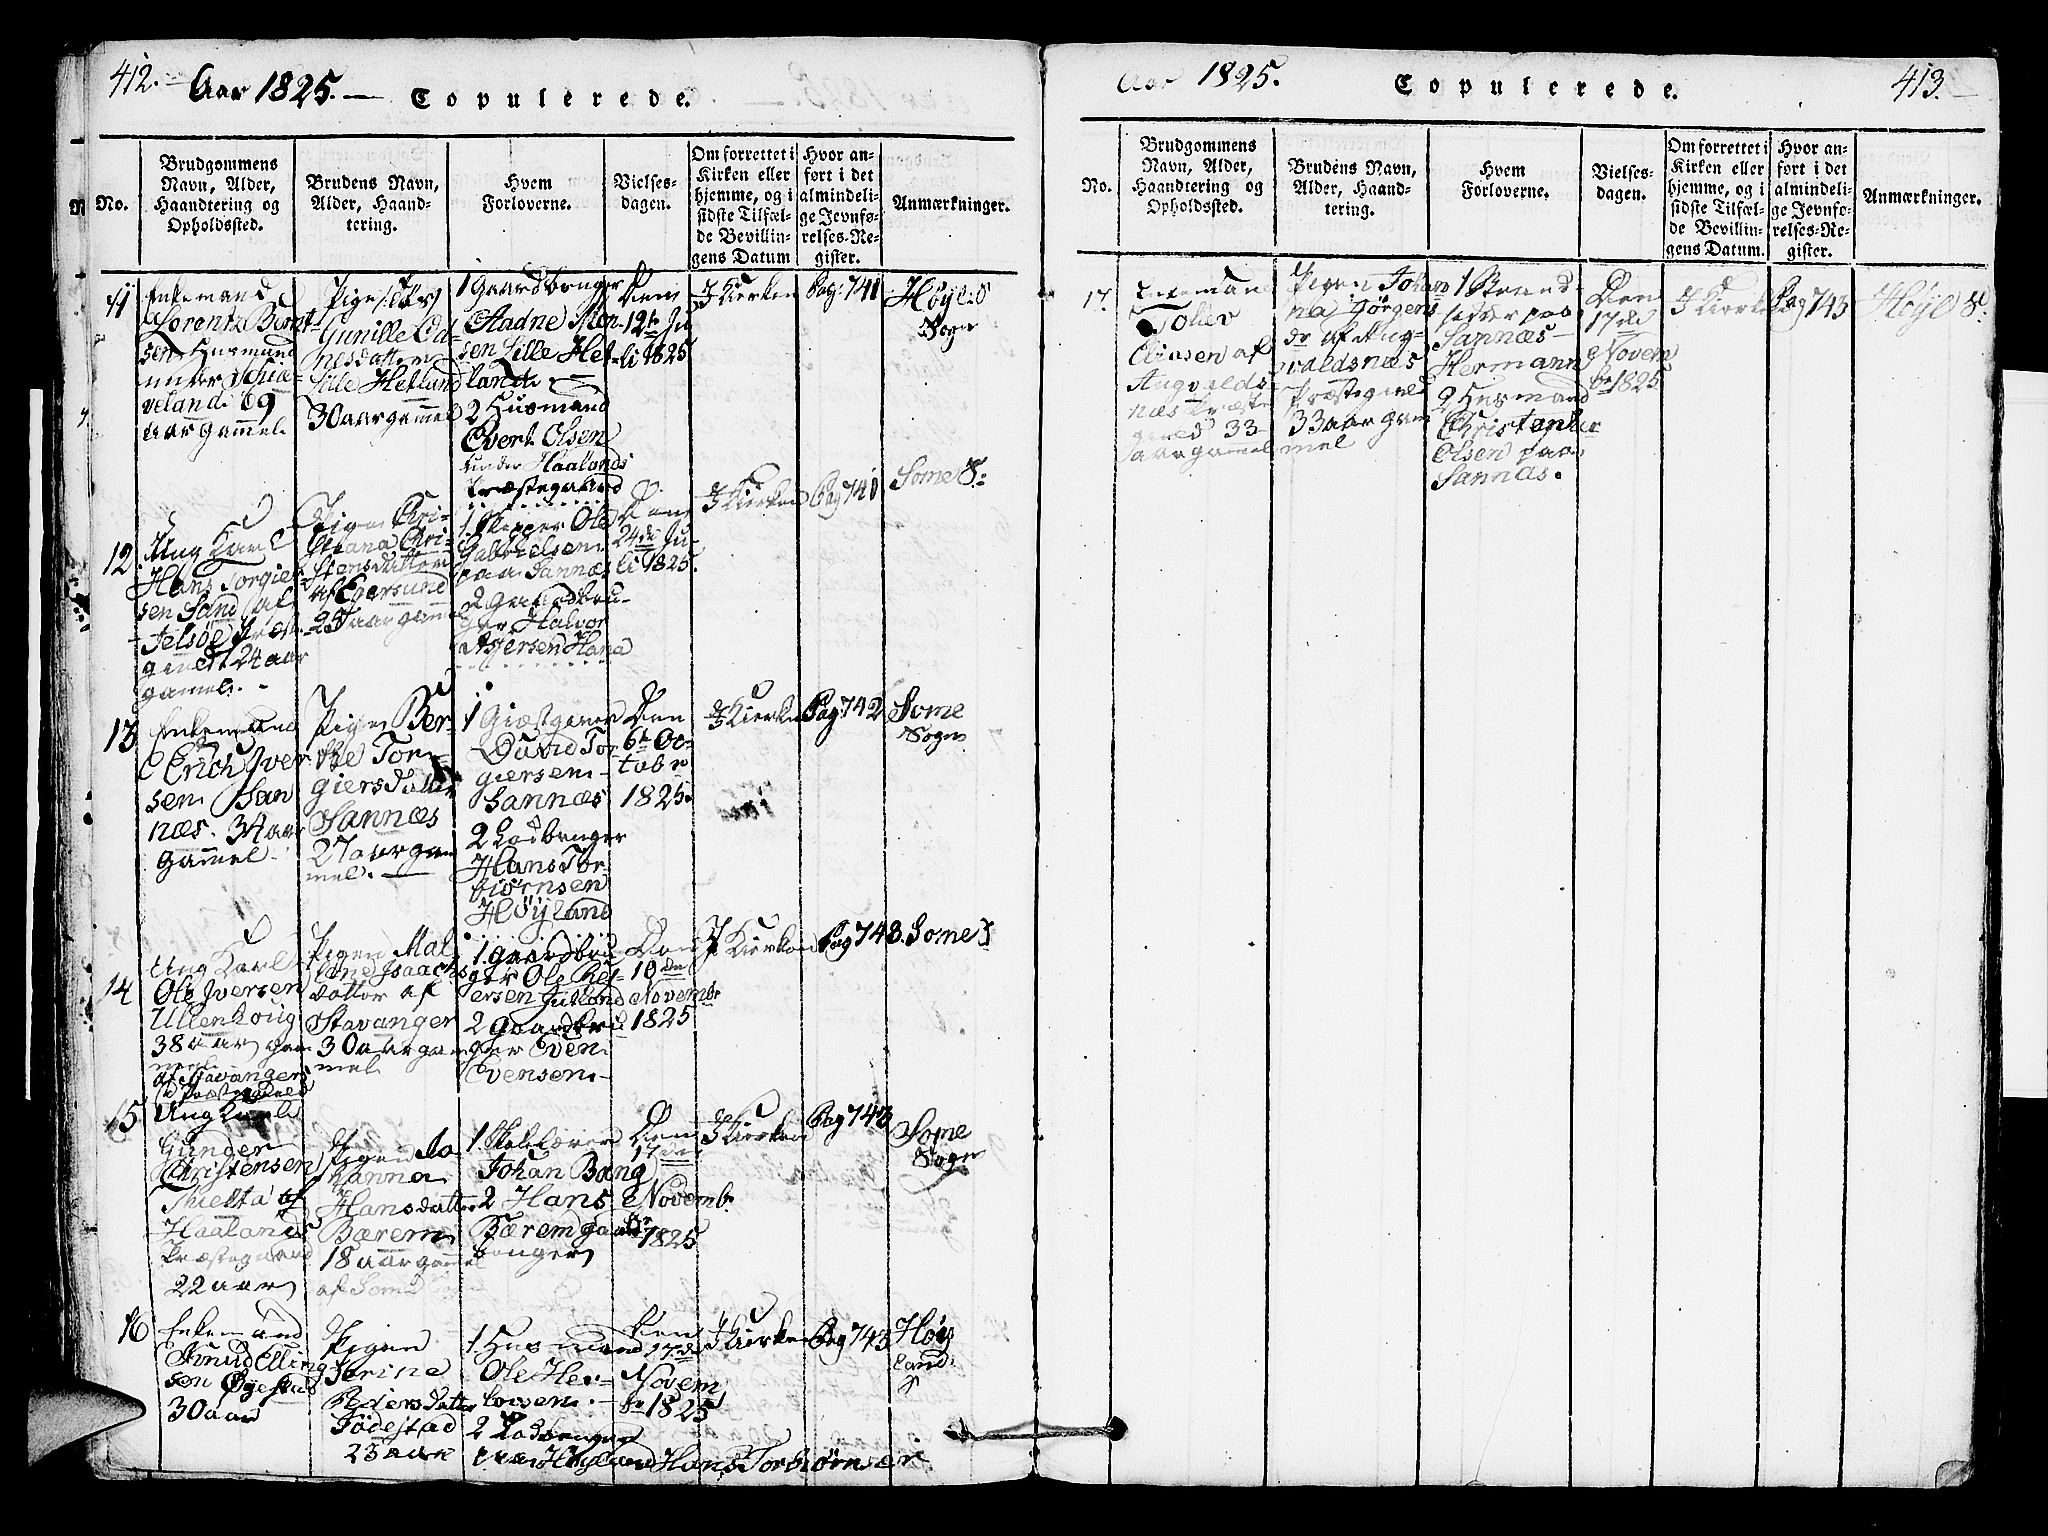 412.
Aar 1825.
Copulerede.
No.
Brudgommens
Navn, Alder,
Haandtering og
Opholdssted.
Brudens Navn,
Alder, Haand-
tering.
Hvem
Forloverne.
Vielses-
dagen.
Om forrettet i
Kirken eller
hjemme, og i
sidste Tilfæl-
de Bevillin-
gens Datum
Hvor an-
ført i det
almindeli-
ge Jevnfø-
relses-Re-
gister.
Anmærkninger.
11
Enkemand
Lorentz Bernt-
sen Husmand
under
veland 69
aar gammel.
Pige
Gunille Ed-
nesdatter
Lille Hetland
30 aar gammel
1 Gaardbruger
Aadne Mon-
sen Lille Het-
land.
2 Husmand
Evert Olsen
under Haalands
Præstegaard
Den
12te Ju-
li 1825
I Kierken
Pag. 741
Høyl:d
Sogn
12
Ung Karl
Hans Torgier-
sen Sand af
Jelsøe Præste-
gield 24 aar
gamel.
Pigen Chri-
stiana Chri-
stensdatter
af Egersund
25 aar gammel
1 Skipper Ole
Gabrielsen
paa Sannæs
2 Gaardbru-
ger Halvor
Asgersen Hana
Den
24de Ju-
li 1825.
I Kierken
Pag 741
Some S:
13
Enkemand
Erich Iver
sen San
næs. 34 aar
gammel.
Pigen Ber-
the Tor-
giersdatter
Sannæs
27 aar gam
mel.
1 Giæstgiver
David Tor
giersen
Sannæs
2 Ladbruger
Hans Tor-
biørnsen
Høyland
Den
6te Oc-
tobr
1825.
I Kierken
Pag: 742
Some
Sogn
14
Ung Karl
Ole Iversen
Ullenhoug
38 aar gam
mel
af Stavanger
Præstegield
Pigen Mal
lene Isaachs
datter af
Stavanger
30 aar gam
mel
1. Gaardbru
ger Ole Rei-
ersen Jutland
2 Gaardbru
ger Even
Evensen
Den
10de
Novembr
1825
I Kierken
Pag 743.
Some S
15
Ung Karl
Gunder
Christensen
Thielta af
Haalands
Præstegaard
22 aar
Pigen Jo
hanna
Hansdatter
Bærem
18 aar gammel
af Some
1. Skolelærer
Johan Bang
2 Hans
Bærem gaard
bruger
Den
17de
Novemb.
1825
I Kierken
Pag 743
Some
Sogn
16
Enkemand
Knud Elling
sen Øgestad
30 aar
Pigen
Serine
Pedersdatter
Födestad
23 aar
1. Husmand
Ole Her-
lovsen.
2 Ladbruger
paa Høyland Hans Torbiørnsen
Den
17de
Novem
br 1825
I Kierken
Pag 743
Høy
land.
S
Aar 1825.
Copulerede.
413.
No.
Brudgommens
Navn, Alder,
Haandtering og
Opholdssted.
Brudens Navn,
Alder, Haand-
tering.
Hvem
Forloverne.
Vielses-
dagen.
Om forrettet i
Kirken eller
hjemme, og i
sidste Tilfæl-
de Bevillin-
gens Datum.
Hvor an-
ført i det
almindeli-
ge Jevnfø-
relses-Re-
gister.
Anmærkninger.
17.
Enkemand
Tollev
af
Augvalds
næs Præste
gield 33
aar gammel
Pigen Johan
na Jørgens
dr af Aug-
valdsnæs
Præstegield
33 aar gam
mel
1 Strand-
sidder paa
Sannæs
Hermann
2 Husmand
Christopher
Olsen paa
Sannæs.
Den
17de
Novem
br 1825
I Kierken
Pag 743
Høyl S.